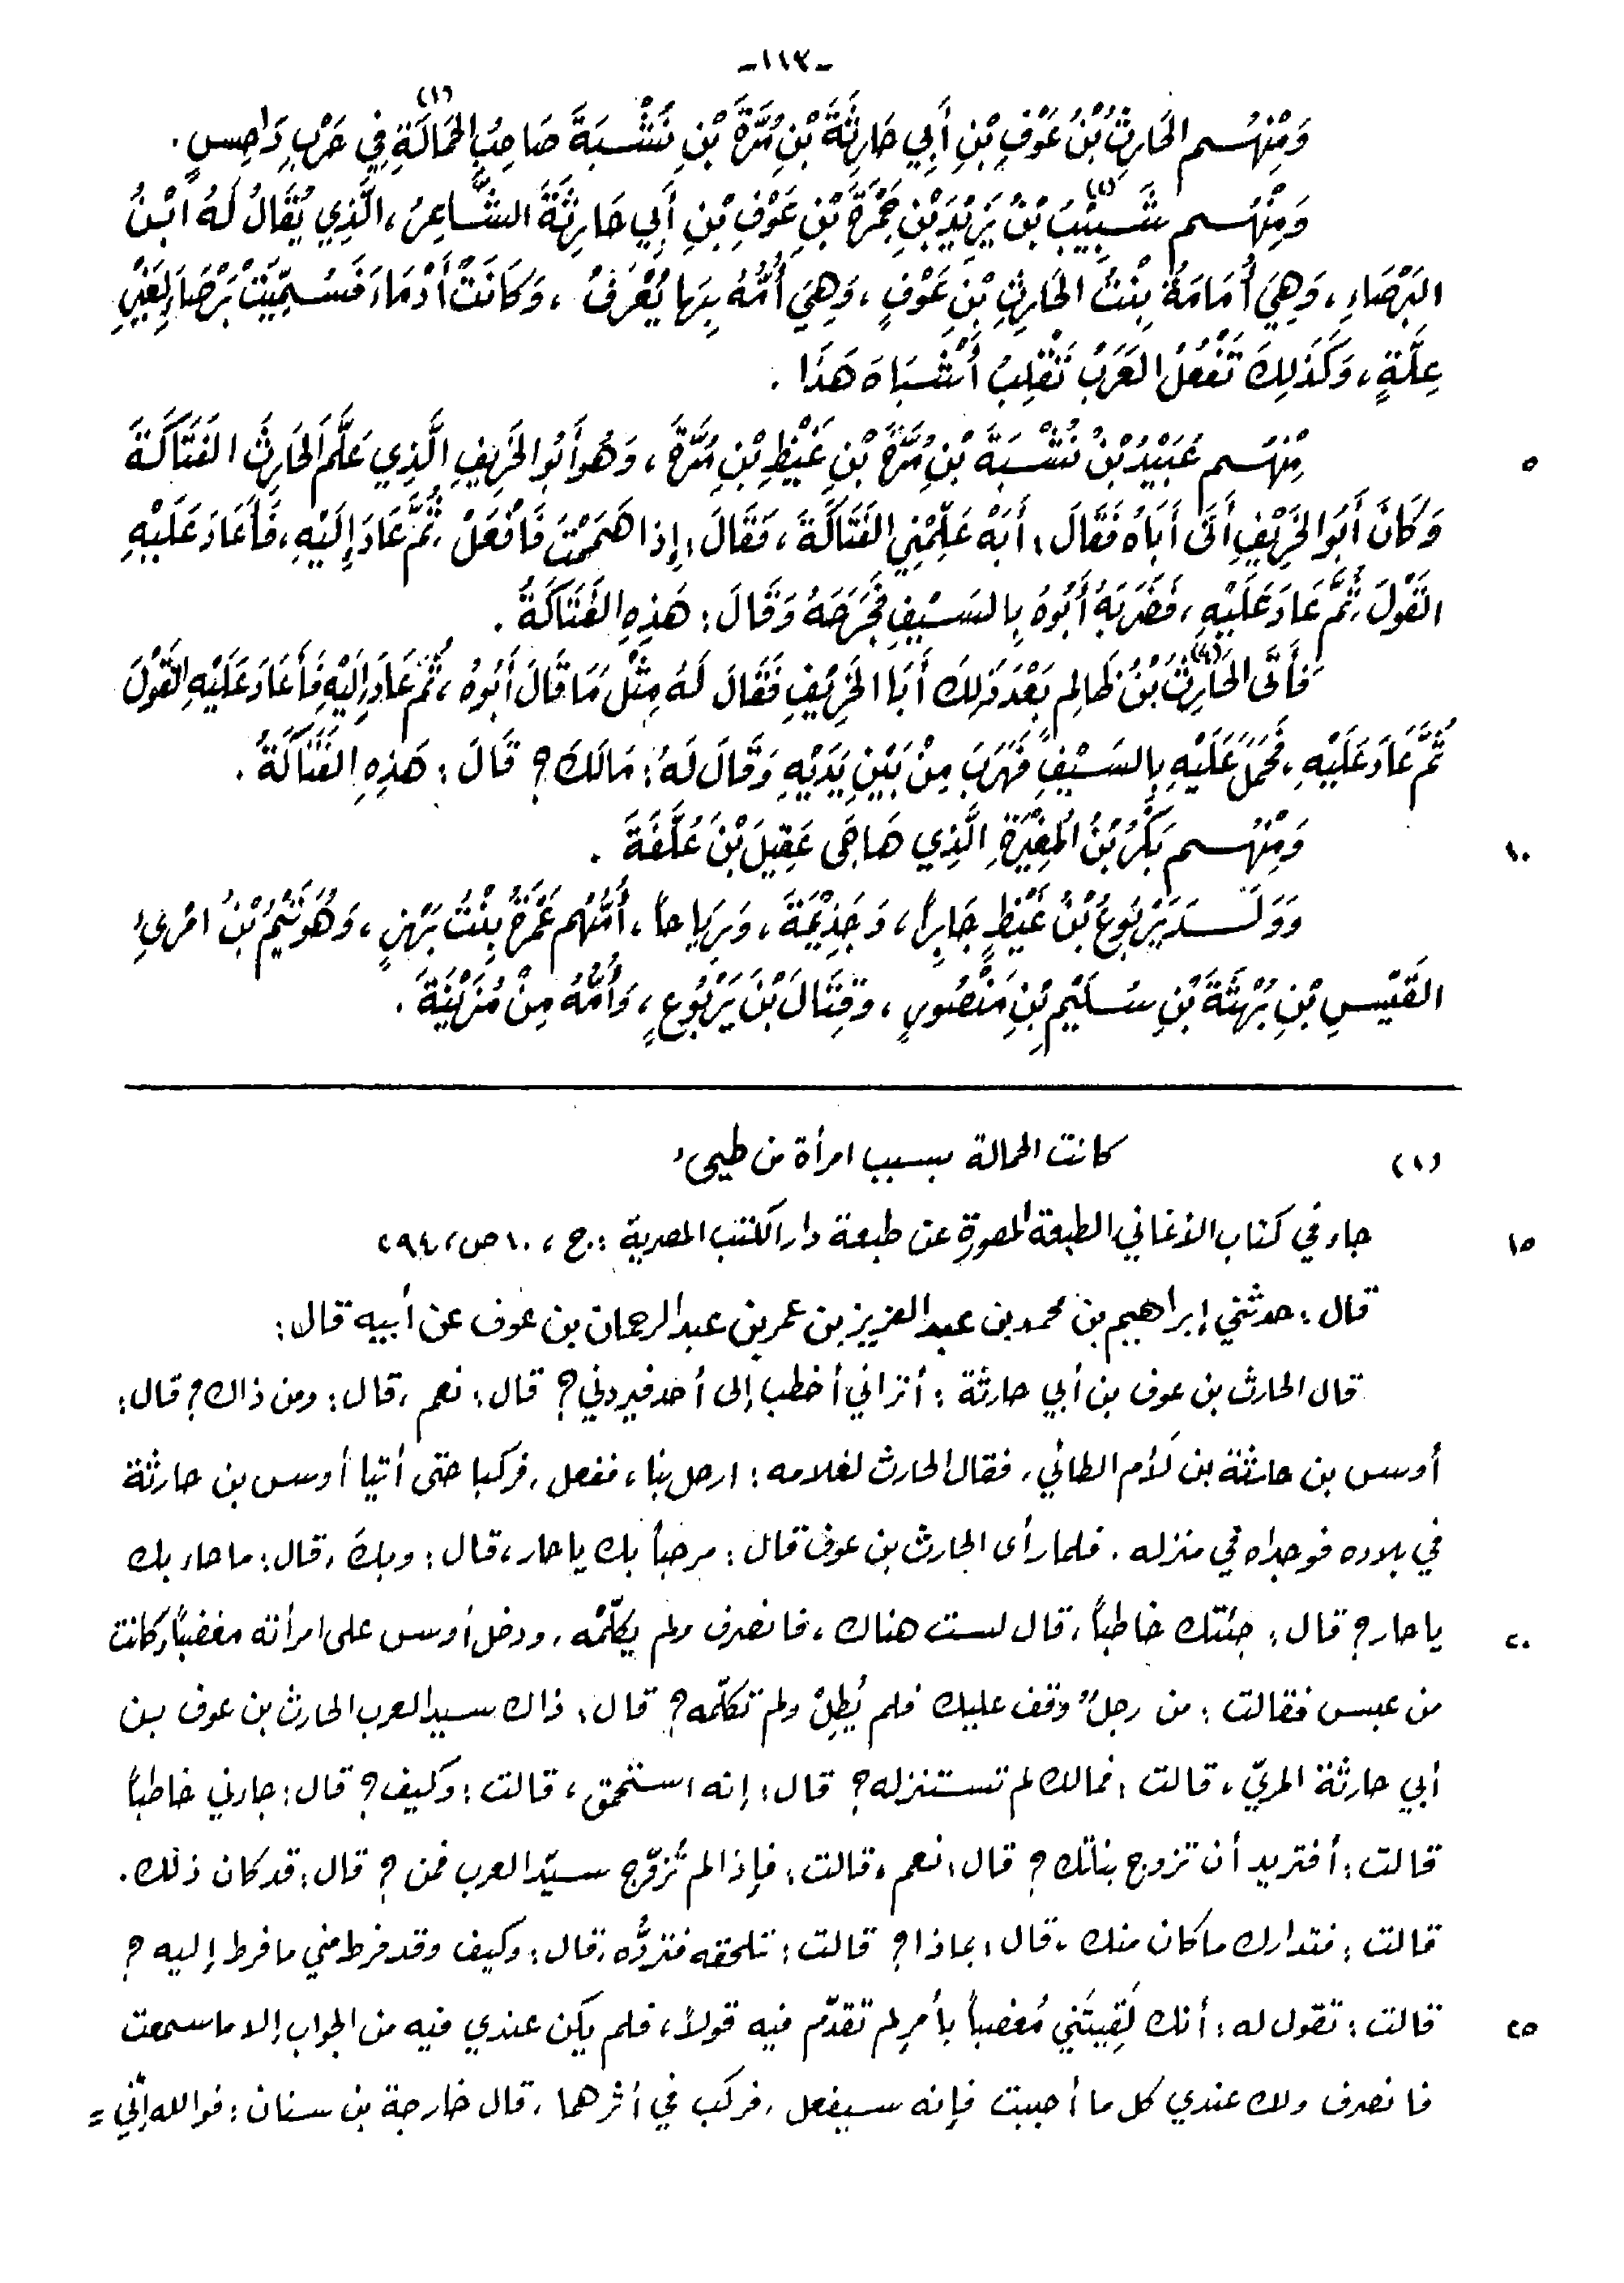 -١١٣-
وَمِنْهُم الحَارِثُ بْنُ عَوْفِ بْنِ أَبِي حَارِثَةَ بْنِ مُرَّةَ بْنِ نُشْبَةَ صَاحِبُ الحَمَالَةِ(١) فِي حَرْبِ دَاحِسٍ.
وَمِنْهُم شَبِيْبُ(٢) بْنُ يَزِيْدَ بْنِ جَمْرَةَ بْنِ عَوْفِ بْنِ أَبِي حَارِثَةَ الشَّاعِرُ، الَّذِي يُقَالُ لَهُ ابْنُ
البَرْصَاءِ، وَهِيَ أُمَامَةُ بِنْتُ الحَارِثِ بْنِ عَوْفٍ، وَهِيَ أُمُّهُ بِهَا يُعْرَفُ، وَكَانَتْ أَدْمَاءَ فَسُمِّيَتْ بَرْصَاءَ لِغَيْرِ
عِلَّةٍ، وَكَذَلِكَ تَفْعَلُ العَرَبُ تَقْلِبُ أَشْبَاهَ هَذَا.
٥ مِنْهُم عُبَيْدُ بْنُ نُشْبَةَ بْنِ مُرَّةَ بْنِ غَيْظِ بْنِ مُرَّةَ، وَهُوَ أَبُو الخَرِيفِ الَّذِي عَلَّمَ الحَارِثَ الفَتَاكَةَ
وَكَانَ أَبَو الخَرِيْفِ أَتَى أَبَاهُ فَقَالَ: أَبَهْ عَلِّمْنِي الفَتَاكَةَ، فَقَالَ: إِذَا هَمَمْتَ فَافْعَلْ، ثُمَّ عَادَ إِلَيْهِ، فَأَعَادَ عَلَيْهِ
القَوْلَ، ثُمَّ عَادَ عَلَيْهِ، فَضَرَبَهُ أَبُوهُ بِالسَيْفِ فَجَرَحَهُ وَقَالَ: هَذِهِ الفَتَاكَةُ.
فَأَتَى الحَارِثُ(٤) بْنُ ظَالِمٍ بَعْدَ ذَلِكَ أَبَا الخَرِيْفِ فَقَالَ لَهُ مِثْلَ مَا قَالَ أَبُوهُ، ثُمَّ عَادَ إِلَيْهِ فَأَعَادَ عَلَيْهِ القَوْلَ
ثُمَّ عَادَ عَلَيْهِ، فَحَمَلَ عَلَيْهِ بِالسَيْفِ فَهَرَبَ مِنْ بَيْنِ يَدَيْهِ وَقَالَ لَهُ: مَالَكَ؟ قَالَ: هَذِهِ الفَتَاكَةُ.
١٠ وَمِنْهُم بَكْرُ بْنُ المُغِيْرَةِ الَّذِي هَاجَى عَقِيلَ بْنَ عُلَّفَةَ.
وَوَلَدَ يَرْبُوعُ بْنُ غَيْظٍ جَابِراً، وَجَذِيْمَةَ، وَرِيَاحاً، أُمُّهُم عَمْرَةُ بِنْتُ بَهْزٍ، وَهُوَ تَيْمُ بْنُ امْرِئِ
القَيْسِ بْنِ بُهْثَةَ بْنِ سُلَيْمِ بْنِ مَنْصُورٍ، وَقِتَالَ بْنَ يَرْبُوعٍ، وَأُمُّهُ مِنْ مُزَيْنَةَ.
(١) كانت الحمالة بسبب امرأة من طيىء
١٥ جاء في كتاب الأغاني الطبعة المصورة عن طبعة دار الكتب المصرية: ج، ١٠ ص، ٢٩٤
قال: حدثني إبراهيم بن محمد بن عبد العزيز بن عمر بن عبد الرحمان بن عوف عن أبيه قال:
قال الحارث بن عوف بن أبي حارثة: أتراني أخطب إلى أحد فيردني؟ قال: نعم، قال: ومن ذاك؟ قال:
أوس بن حارثة بن لأم الطائي، فقال الحارث لغلامه: ارحل بنا، ففعل، فركبا حتى أتيا أوس بن حارثة
في بلاده فوجداه في منزله. فلما رأى الحارث بن عوف قال: مرحباً بك ياحار، قال: وبكَ، قال: ما جاء بك
٢٠ ياحار؟ قال: جئتك خاطباً، قال لست هناك، فانصرف ولم يكلّمْه، ودخل أوس على امرأته مغضباً وكانت
من عبس فقالت: من رجلٌ وقف عليك فلم يُطِلْ ولم تكلّمه؟ قال: ذاك سيد العرب الحارث بن عوف بن
أبي حارثة المريّ، قالت: فمالك لم تستنزله؟ قال: إنه استحمق، قالت: وكيف؟ قال: جاءني خاطباً
قالت: أفتريد أن تزوج بناتك؟ قال: نعم، قالت: فإذا لم تُزوّج سيّد العرب فمن؟ قال: قد كان ذلك.
قالت: فتدارك ما كان منك، قال: بماذا؟ قالت: تلحقه فتردُّه، قال: وكيف وقد فرط مني ما فرط إليه؟
٢٥ قالت: تقول له: أنك لَقِيتَني مُغضباً بأمرٍ لم تقدّم فيه قولاً، فلم يكن عندي فيه من الجواب إلا ما سمعت
فانصرف ولك عندي كل ما أحببت فإنه سيفعل، فركب في أثرهما، قال خارجة بن سنان: فوالله إنّي =